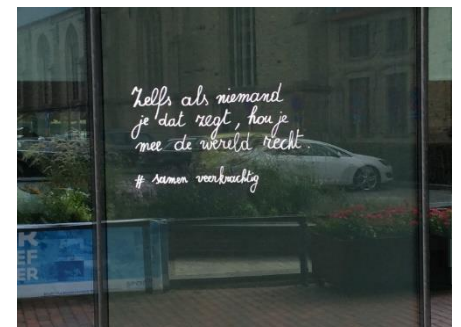 Zelfs als niemand
je dat zegt, hou je
mee de wereld recht.
# samen veerkrachtig
K
EF
ER